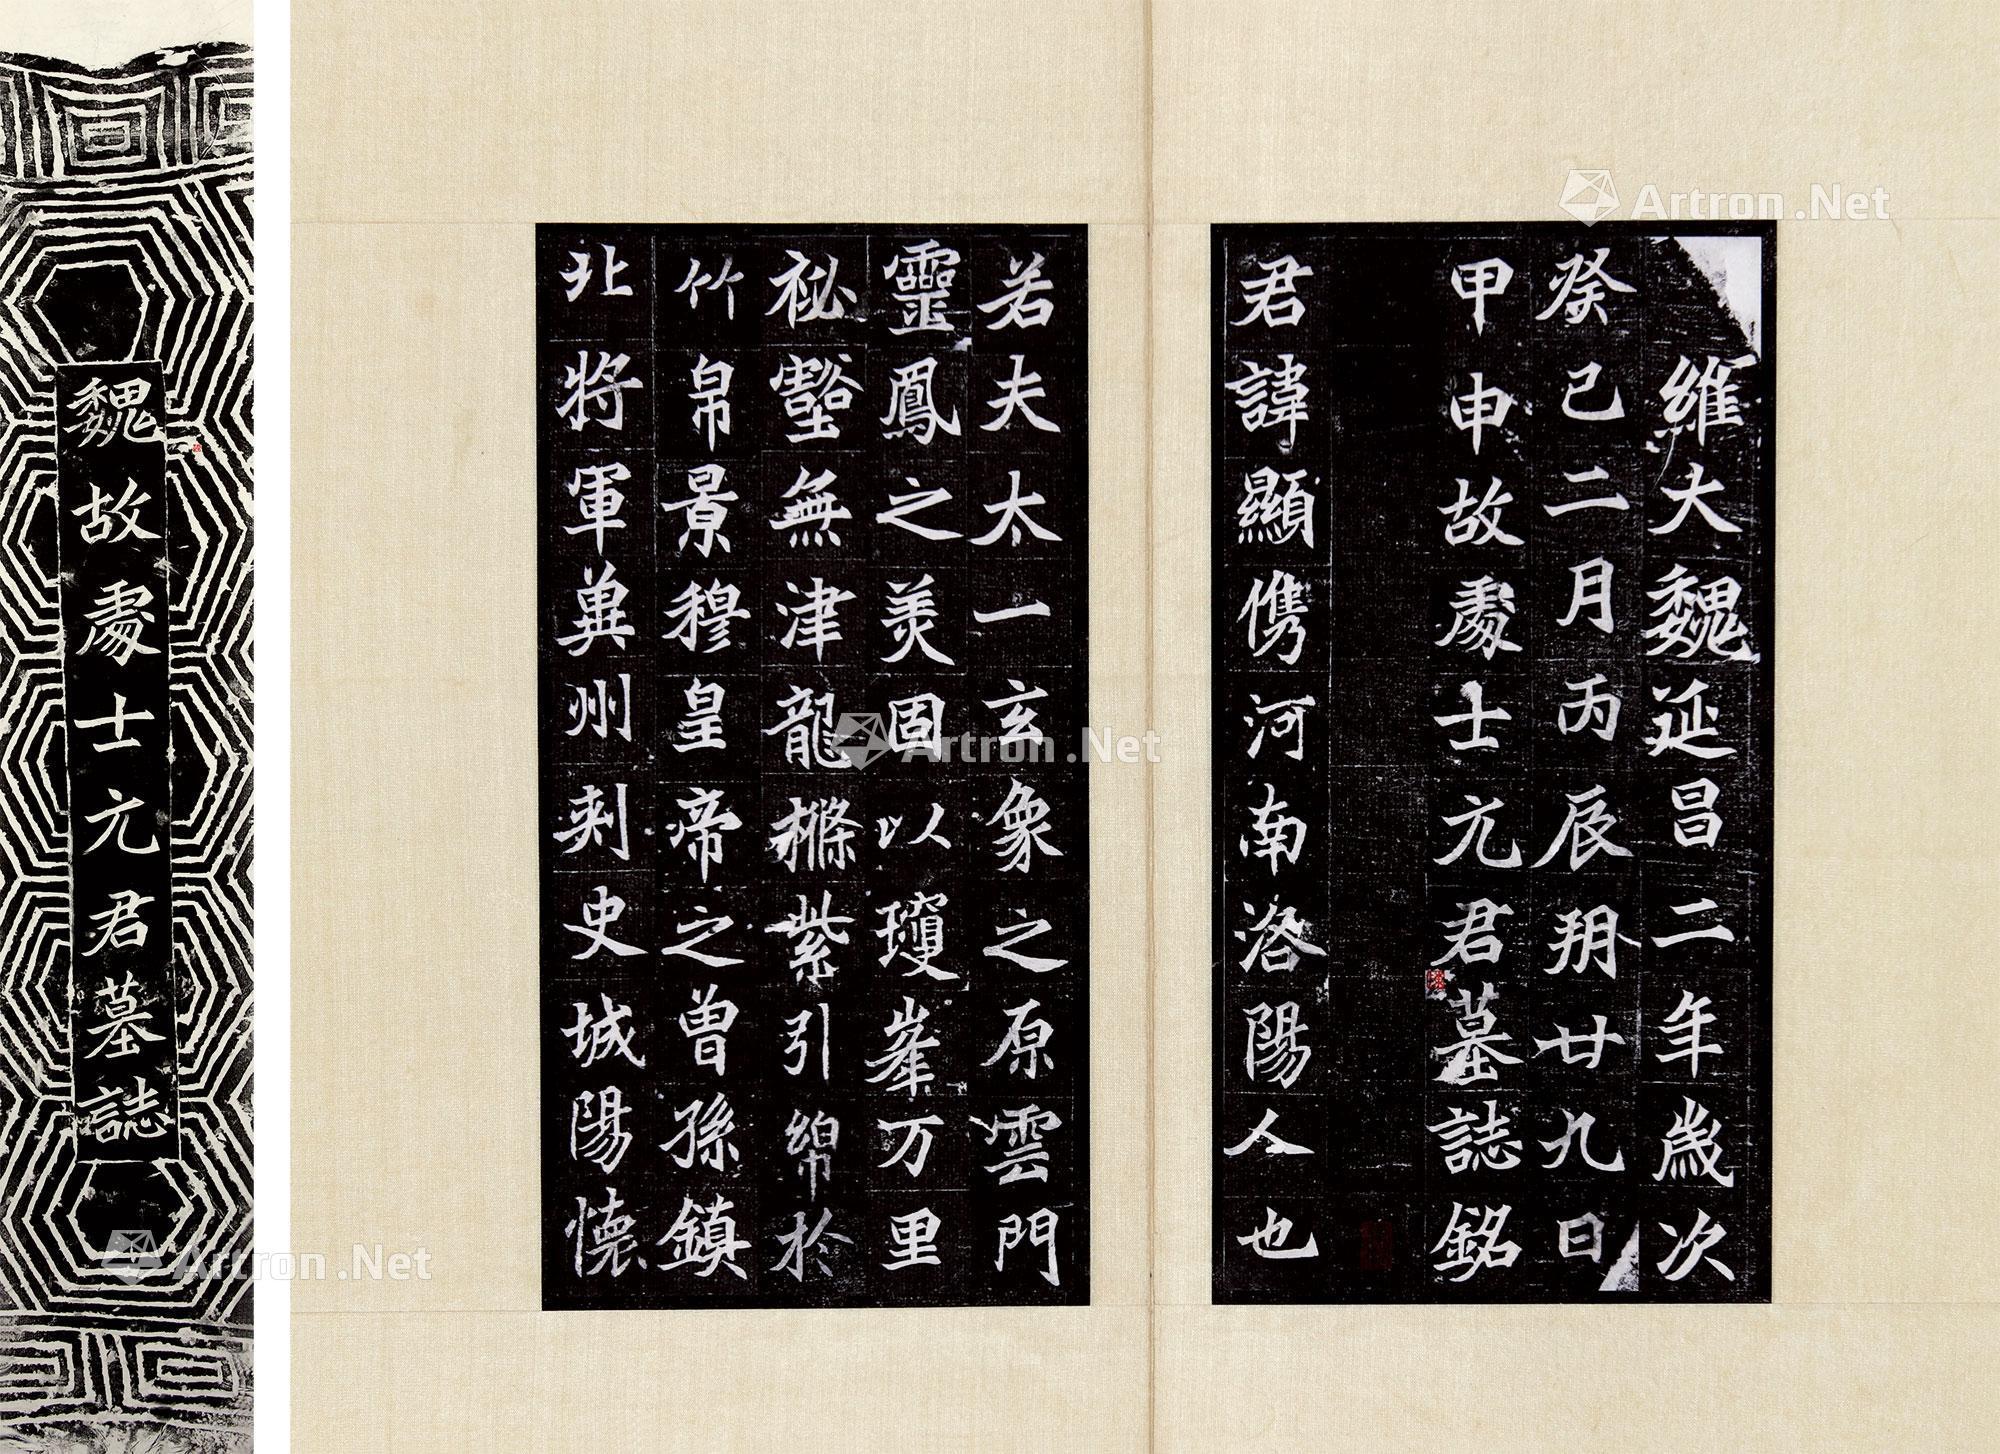 魏故處士元君墓誌
維大魏延昌二年歲次
癸巳二月丙辰朔廿九日
甲申故處士元君墓誌銘
君諱顯儁河南洛陽人也
若夫太一玄象之原雲門
靈鳳之美固以瓊峯万里
祕壑無津龍樤紫引綿於
竹帛景穆皇帝之曾孫鎮
北將軍冀州刺史城陽懷
Artron.Net
Artron.Net
Artron.Net